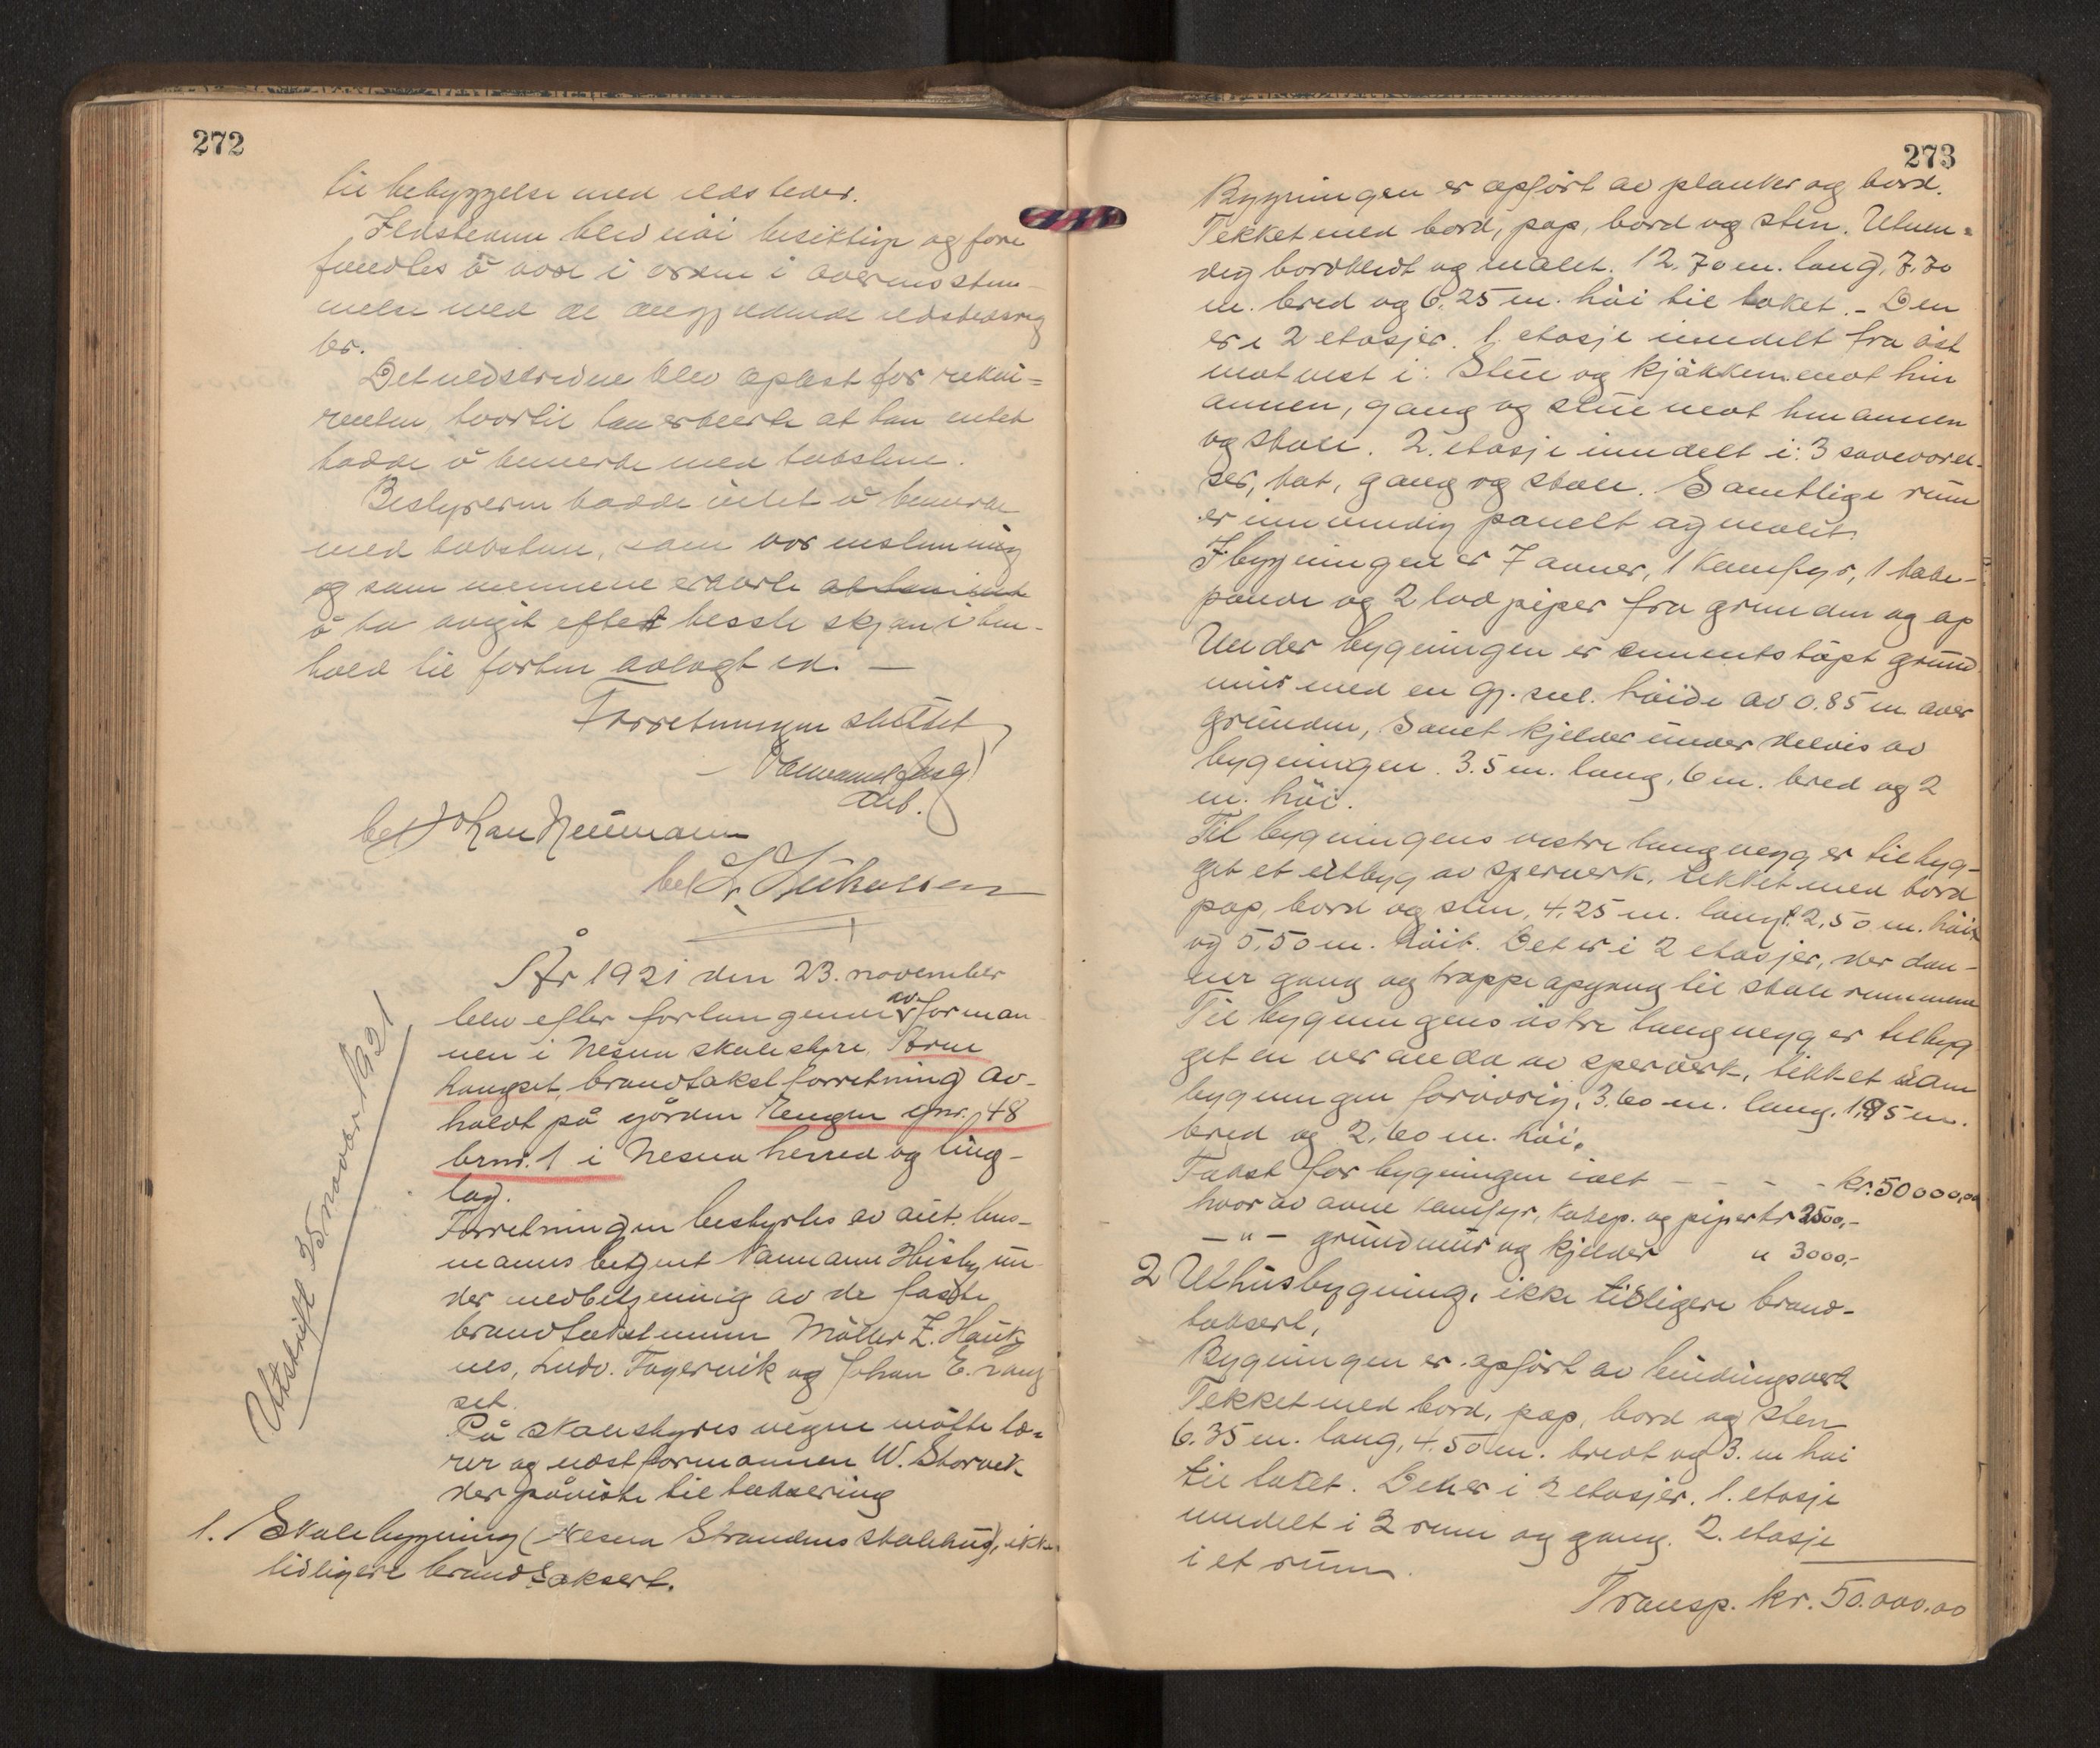 272
til bebyggelse med ildsteder.
Ildstedene blev nöi besiktige og fore
fundtes å være i orden i overensstem-
melse med de angjeldende ildstedsreg
ler.
Det nedskrevne blev oplest for rekvi-
renten, hvortil han erklærte at han intet
hadde å bemerke med taksten.
Bestyreren hadde intet å bemerke
med taksten, som var enstemmig
og som mennene erklærte
å ha avgit efter beste skjön i hen-
hold til fortin avlagt ed. —
Forretningen sluttet
bet Johan Neumann
bet
År 1921 den 23. november
blev efter forlangende av forman-
nen i Nesna skolestyre, Arne
Langset, brandtakstforretning av-
holdt på gården Zengen gnr. 48
brnr. 1 i Nesna herred og ting-
lag.
Forretningen bestyrtes av aut. lens-
manns betjent Normann Husby un-
der medbetjening av de faste
brandtakstmenn Möller Z. Hauk
nes, Ludv. Fagervik og Johan E. Lang
set.
På skolestyrets vegne mötte læ-
rer og næstformannen W. Storvik
der påviste til taksering
1. Skolebygning (Nesna Strandens skolehus), ikke
tidligere brandtaksert.
Utskrift 25 novbr 1921
273
Bygningen er opfört av planker og bord.
Tekket med bord, pap, bord og sten. Utven-
dig bordkledt og malet. 12.70 m. lang, 7.70
m. bred og 6.25 m. höi til taket. - Den
er i 2 etasjer. 1. etasje inndelt fra öst
mot vest i: Stue og kjökken mot hin
annen, gang og stue mot hin annen
og skole. 2. etasje inndelt i: 3 soveværel-
ser, bat, gang og skole. Samtlige rum
er innvendig panelt og malet.
I bygningen er 7 ovner, 1 komfyr, 1 bake-
panne og 2 lod piper fra grunden og op
Under bygningen er cementstöpt grund
mur med en gj. snl. höide av 0.85 m over
grunden, samt kjelder under delvis av
bygningen. 3.5 m. lang, 6 m. bred og 2
m. höi.
Til bygningens vestre langvegg er tilbyg-
get et utbyg av sperverk, tekket med bord
pap, bord og sten, 4.25 m. langt, 2,50 m. höit
og 5,50 m. höit. Det er i 2 etasjer, der dan-
ner gang og trappeopgang til skole rummene
Til bygningens östre langvegg er tilbyg
get en veranda av sperverk, tekket som
bygningen forövrig, 3.60 m. lang, 1,85 m.
bred og 2,60 m. höi.
Takst for bygningen ialt - - - - kr. 50000,00
hvorav ovne komfyr, kakep. og piper kr 2500,-
- " - grundmur og kjelder " 3000,-
2 Uthusbygning, ikke tidligere brand-
taksert,
Bygningen er opfört av bindingsverk
Tekket med bord, pap, bord og sten
6.35 m. lang, 4.50 m. bredt og 3. m höi
til taket. Den er i 2 etasjer. 1. etasje
inndelt i 2 rum og gang. 2. etasje
i et rum.
Transp. kr. 50.000.00